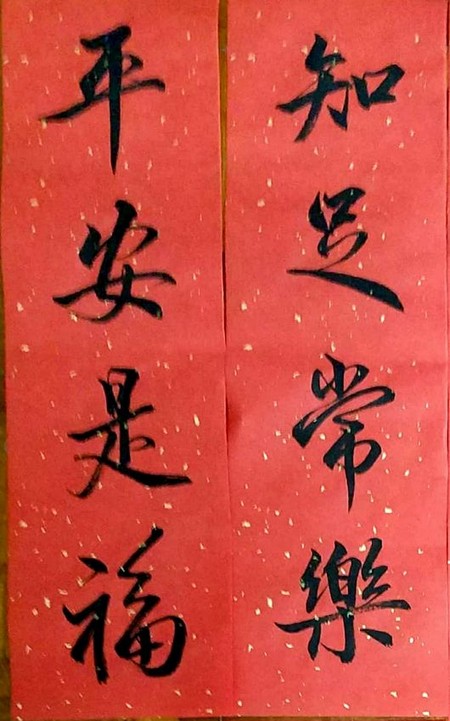 知足常樂
平安是福